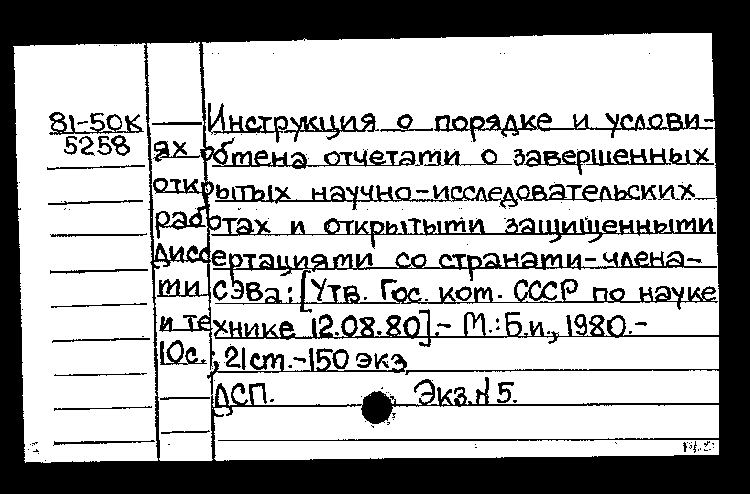 81-50К Инструкция о порядке и услови-
5258 ях обмена отчетами о завершенных
открытых научно-исследовательских
работах и открытыми защищенными
диссертациями со странами-члена-
ми СЭВа: [Утв. Гос. ком. СССР по науке
и технике 12.08.80].- М.: Б.и., 1980.-
10с.; 21см.-150 экз.
ДСП. Экз.N5.